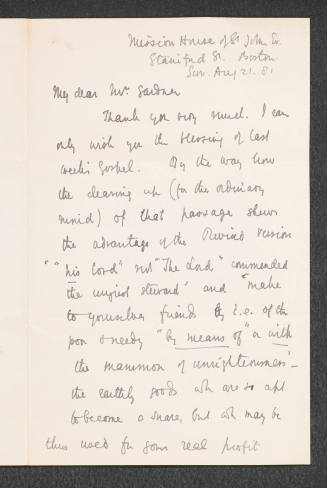 Mission House of St John Ev.
Staniford St. Boston
Sun. Aug 21. 81
My dear Mrs. Gardner
Thank you very much. I can
only wish you the blessing of last
week's Gospel. By the way how
the clearing up (for the ordinary
mind) of that passage shews
the advantage of the Revised Version
" "his Lord" not "The Lord" commended
the unjust steward" and "make
to yourselves friends by i.e. of the
poor & needy "by means of" or with
the mammon of unrighteousness" –
the earthly goods wh are so apt
to become a snare, but wh may be
thus used for your real profit